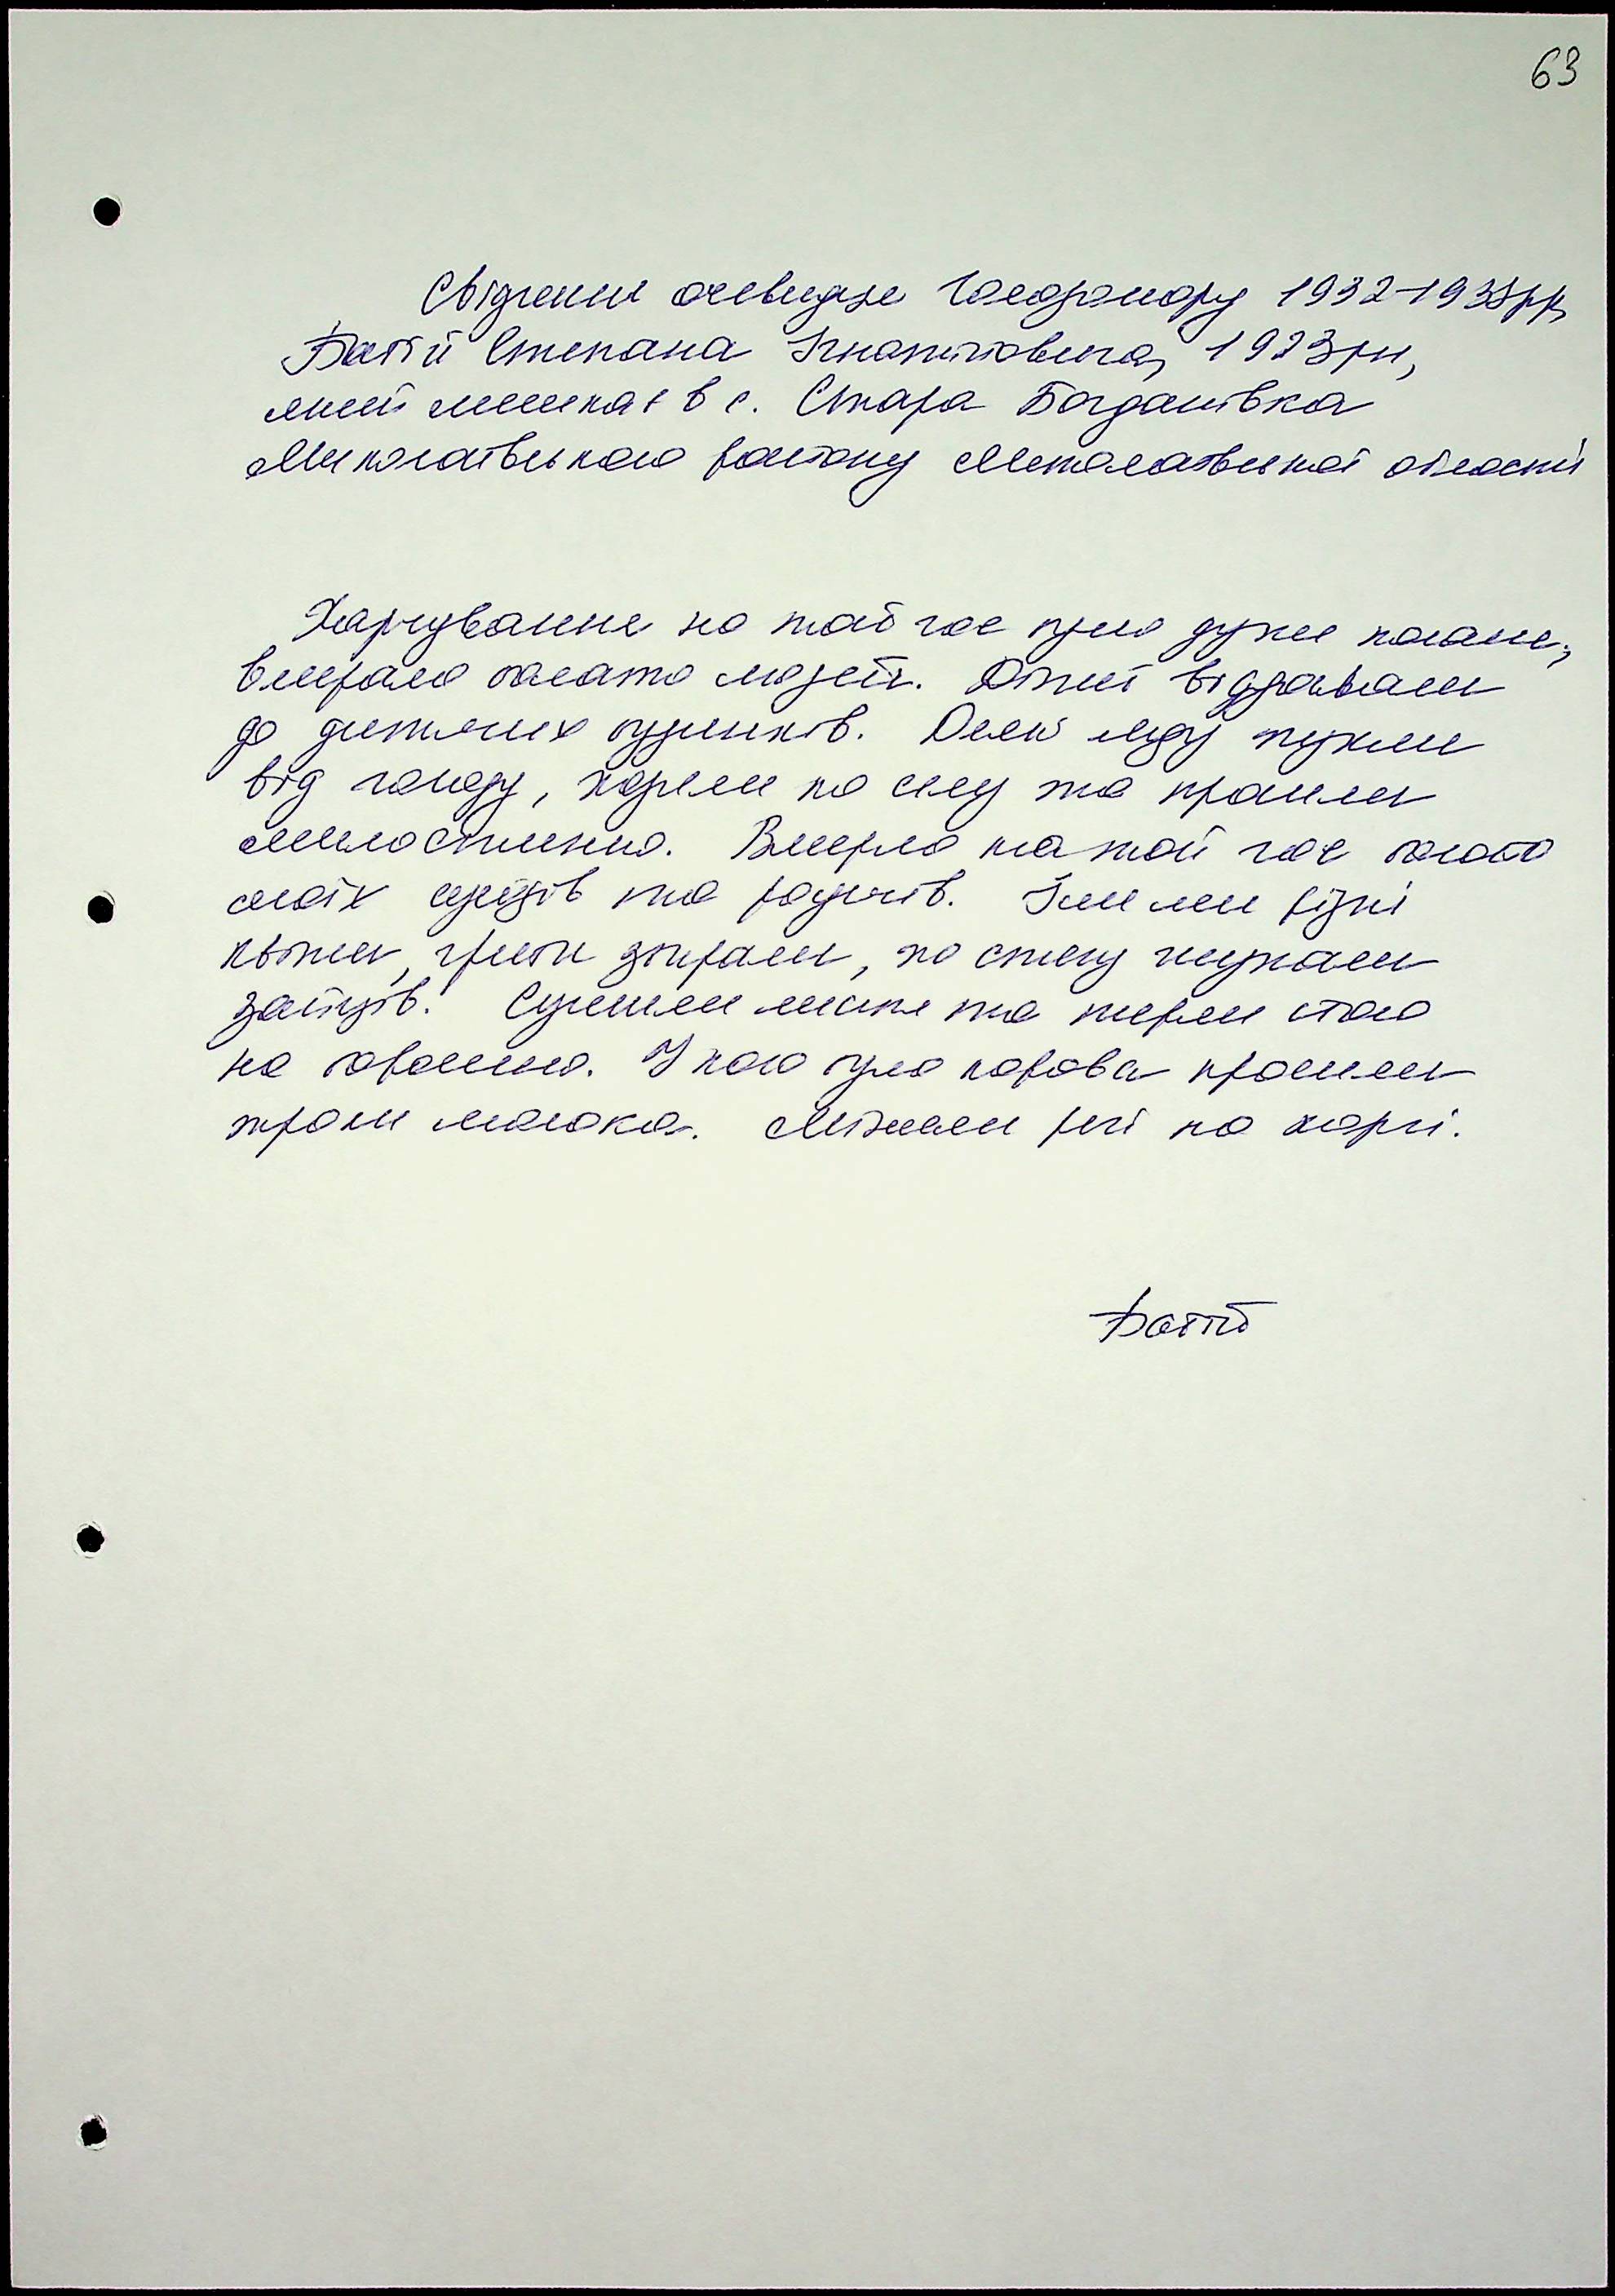 63
Свідчення очевидця Голодомору 1932-1933рр,
Батій Степана Ігнатійовича, 1923рн,
який мешкає в с. Стара Богданівка
Миколаївського району Миколаївської області
Харчування на той час було дуже погане,
вмирало багато людей. Дітей віддавали
до дитячих будинків. Деякі люди пухли
від голоду, ходили по селу та просили
милостиню. Вмерло на той час багато
моїх сусідів та родичів. Їли ми різні
квіти, гриби збирали, по степу шукали
зайців. Сушили листя та терли його
на борошно. У кого була корова просили
трохи молока. Міняли речі на харчі.
Батій